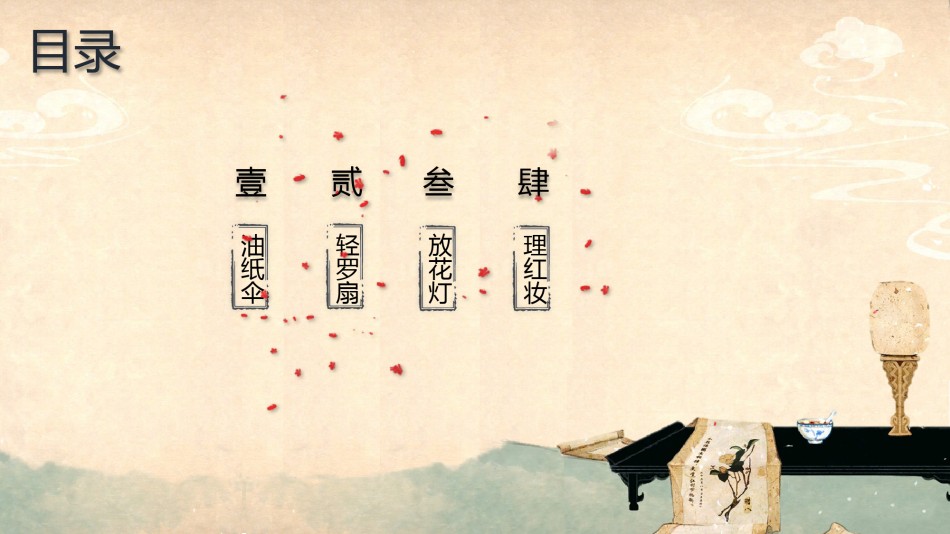 目录
壹
贰
叁
肆
油纸伞
轻罗扇
放花灯
理红妆